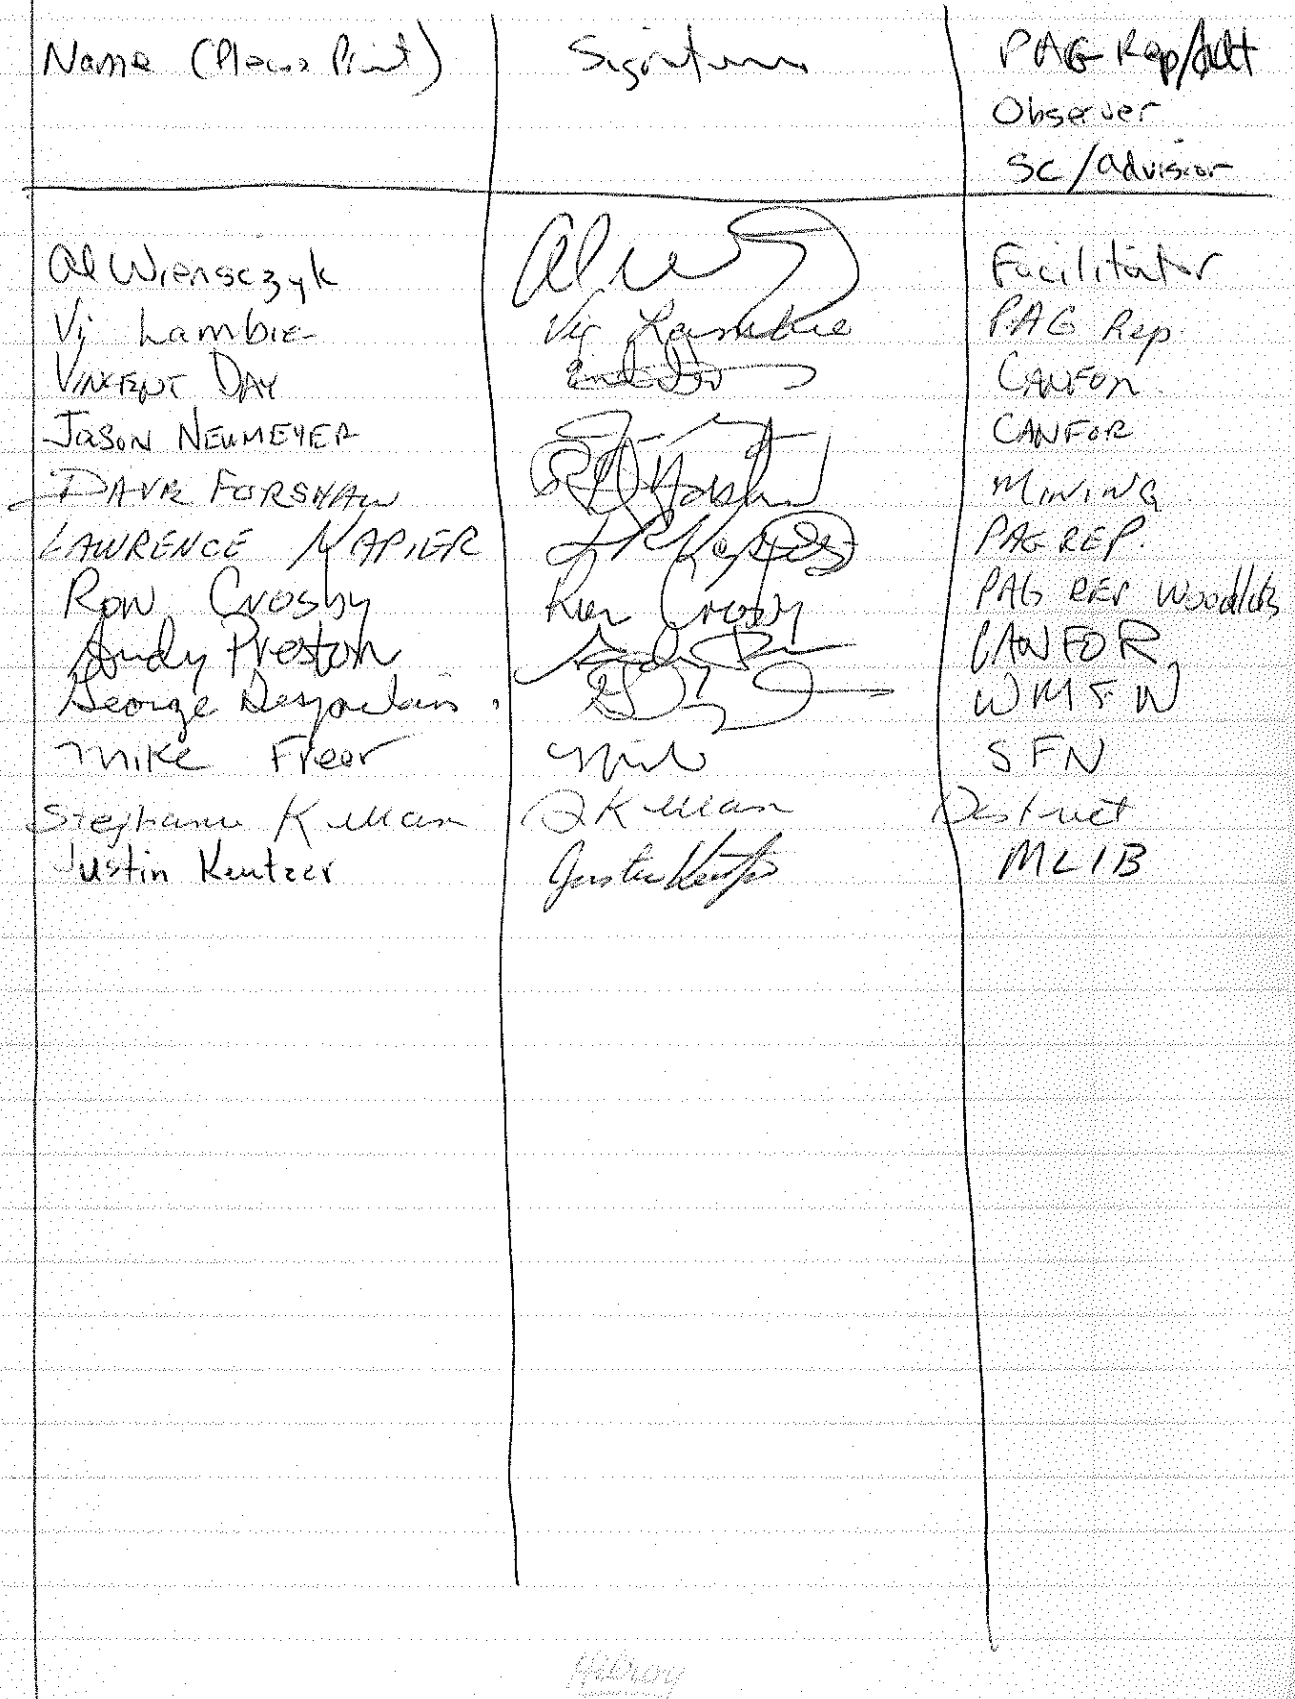 Name (Please Print) Signature PAG Rep/Alt
Observer
SC/advisior
Al Wiensczyk Facilitator
Vi Lambie Vi Lambie PAG Rep.
VINCENT DAY CANFOR
JASON NEUMEYER CANFOR
DAVE FORSHAW MINING
LAWRENCE NAPIER PAG REP.
Ron Crosby Ron Crosby PAG REP Woodlots
Andy Preston CANFOR
George Desjarlais. WMFN
Mike Freer SFN
Stephanie Killam S Killam District
Justin Kentzer Justin MLIB
Hilroy